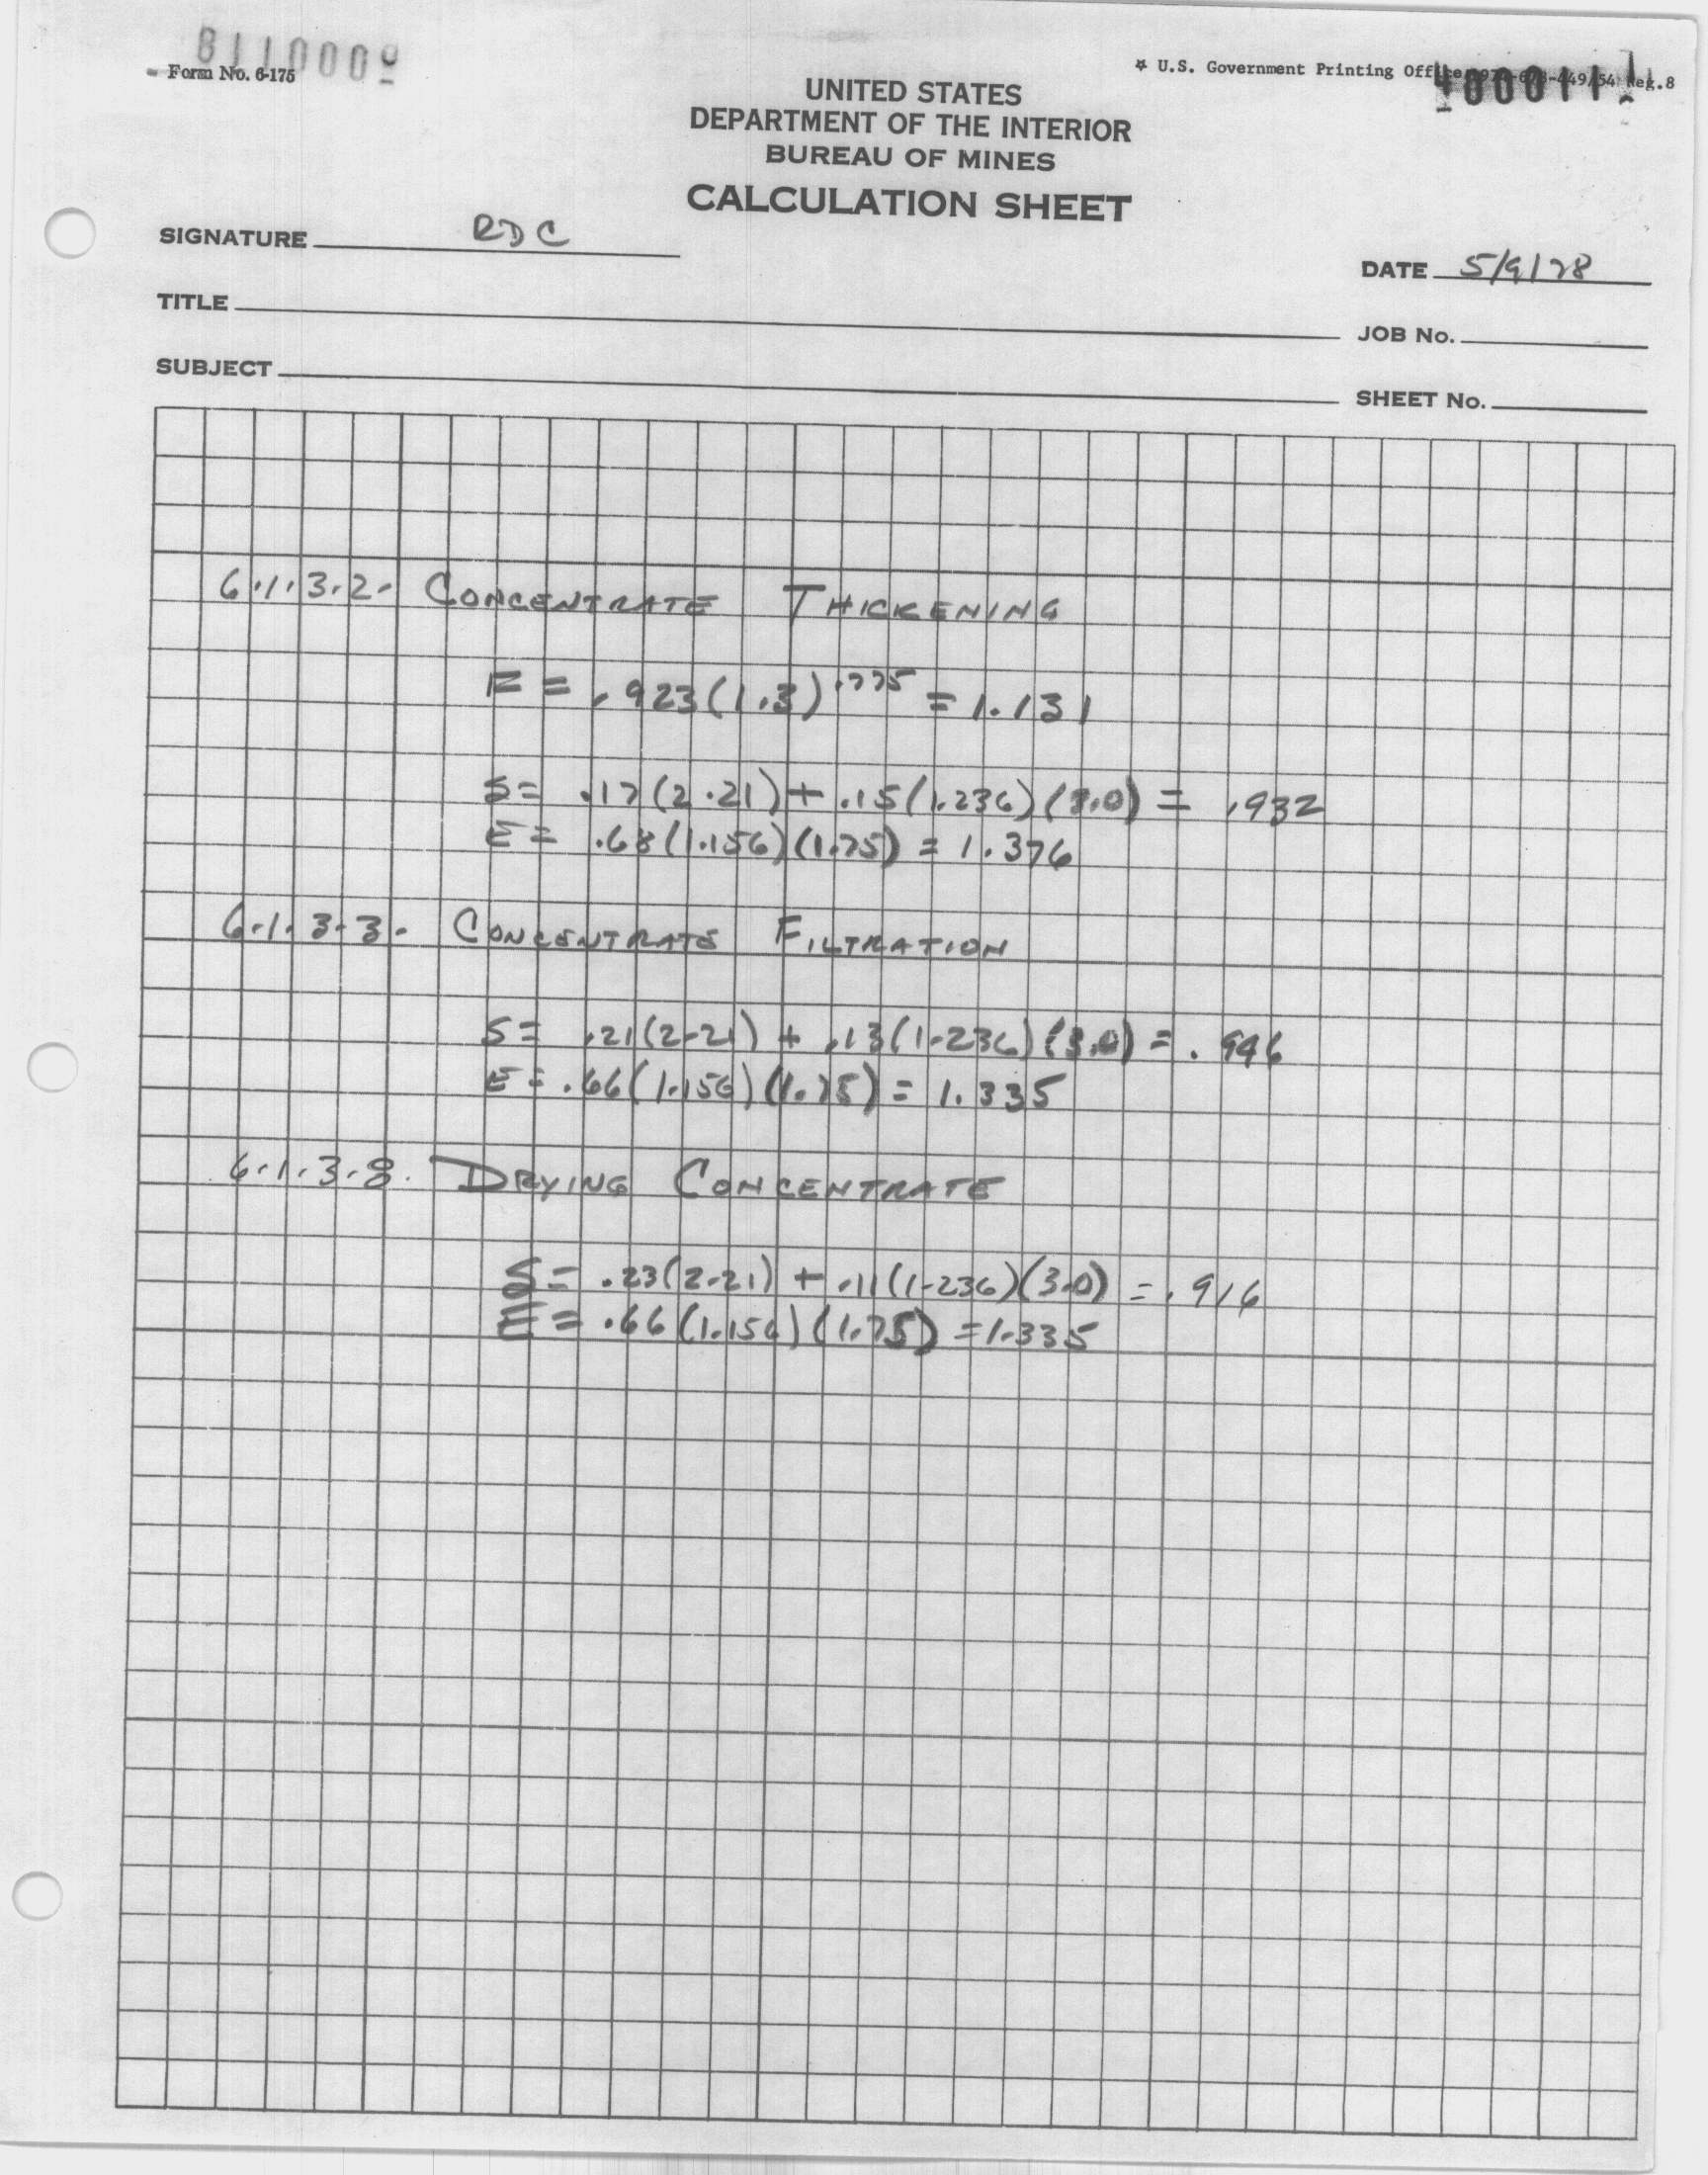 8110009
Form No. 6-175
* U.S. Government Printing Office
Reg.8
400011
UNITED STATES
DEPARTMENT OF THE INTERIOR
BUREAU OF MINES
CALCULATION SHEET
SIGNATURE RDC
DATE 5/9/78
TITLE
JOB No.
SUBJECT
SHEET No.
6.1.3.2. CONCENTRATE THICKENING
F = .923(1.3).775 = 1.131
S = .17(2.21) + .15(1.236)(3.0) = .932
E = .68(1.156)(1.75) = 1.376
6.1.3.3. CONCENTRATE FILTRATION
S = .21(2.21) + .13(1.236)(3.0) = .946
E = .66(1.156)(1.75) = 1.335
6.1.3.8. DRYING CONCENTRATE
S = .23(2.21) + .11(1.236)(3.0) = .916
E = .66(1.156)(1.75) = 1.335